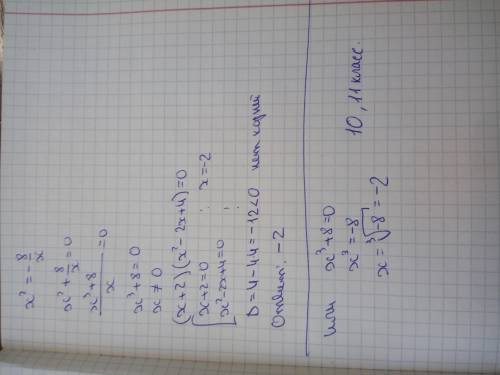 x² = -8/x
x² + 8/x = 0
(x³+8)/x = 0
x³+8 = 0
x ≠ 0
(x+2)(x²-2x+4)=0
[x+2=0 ; x=-2
[x²-2x+4=0 ;
D=4-4·4=-12<0 нет корней
Ответ: -2
или x³+8=0
x³=-8
x=∛-8=-2
10, 11 класс.